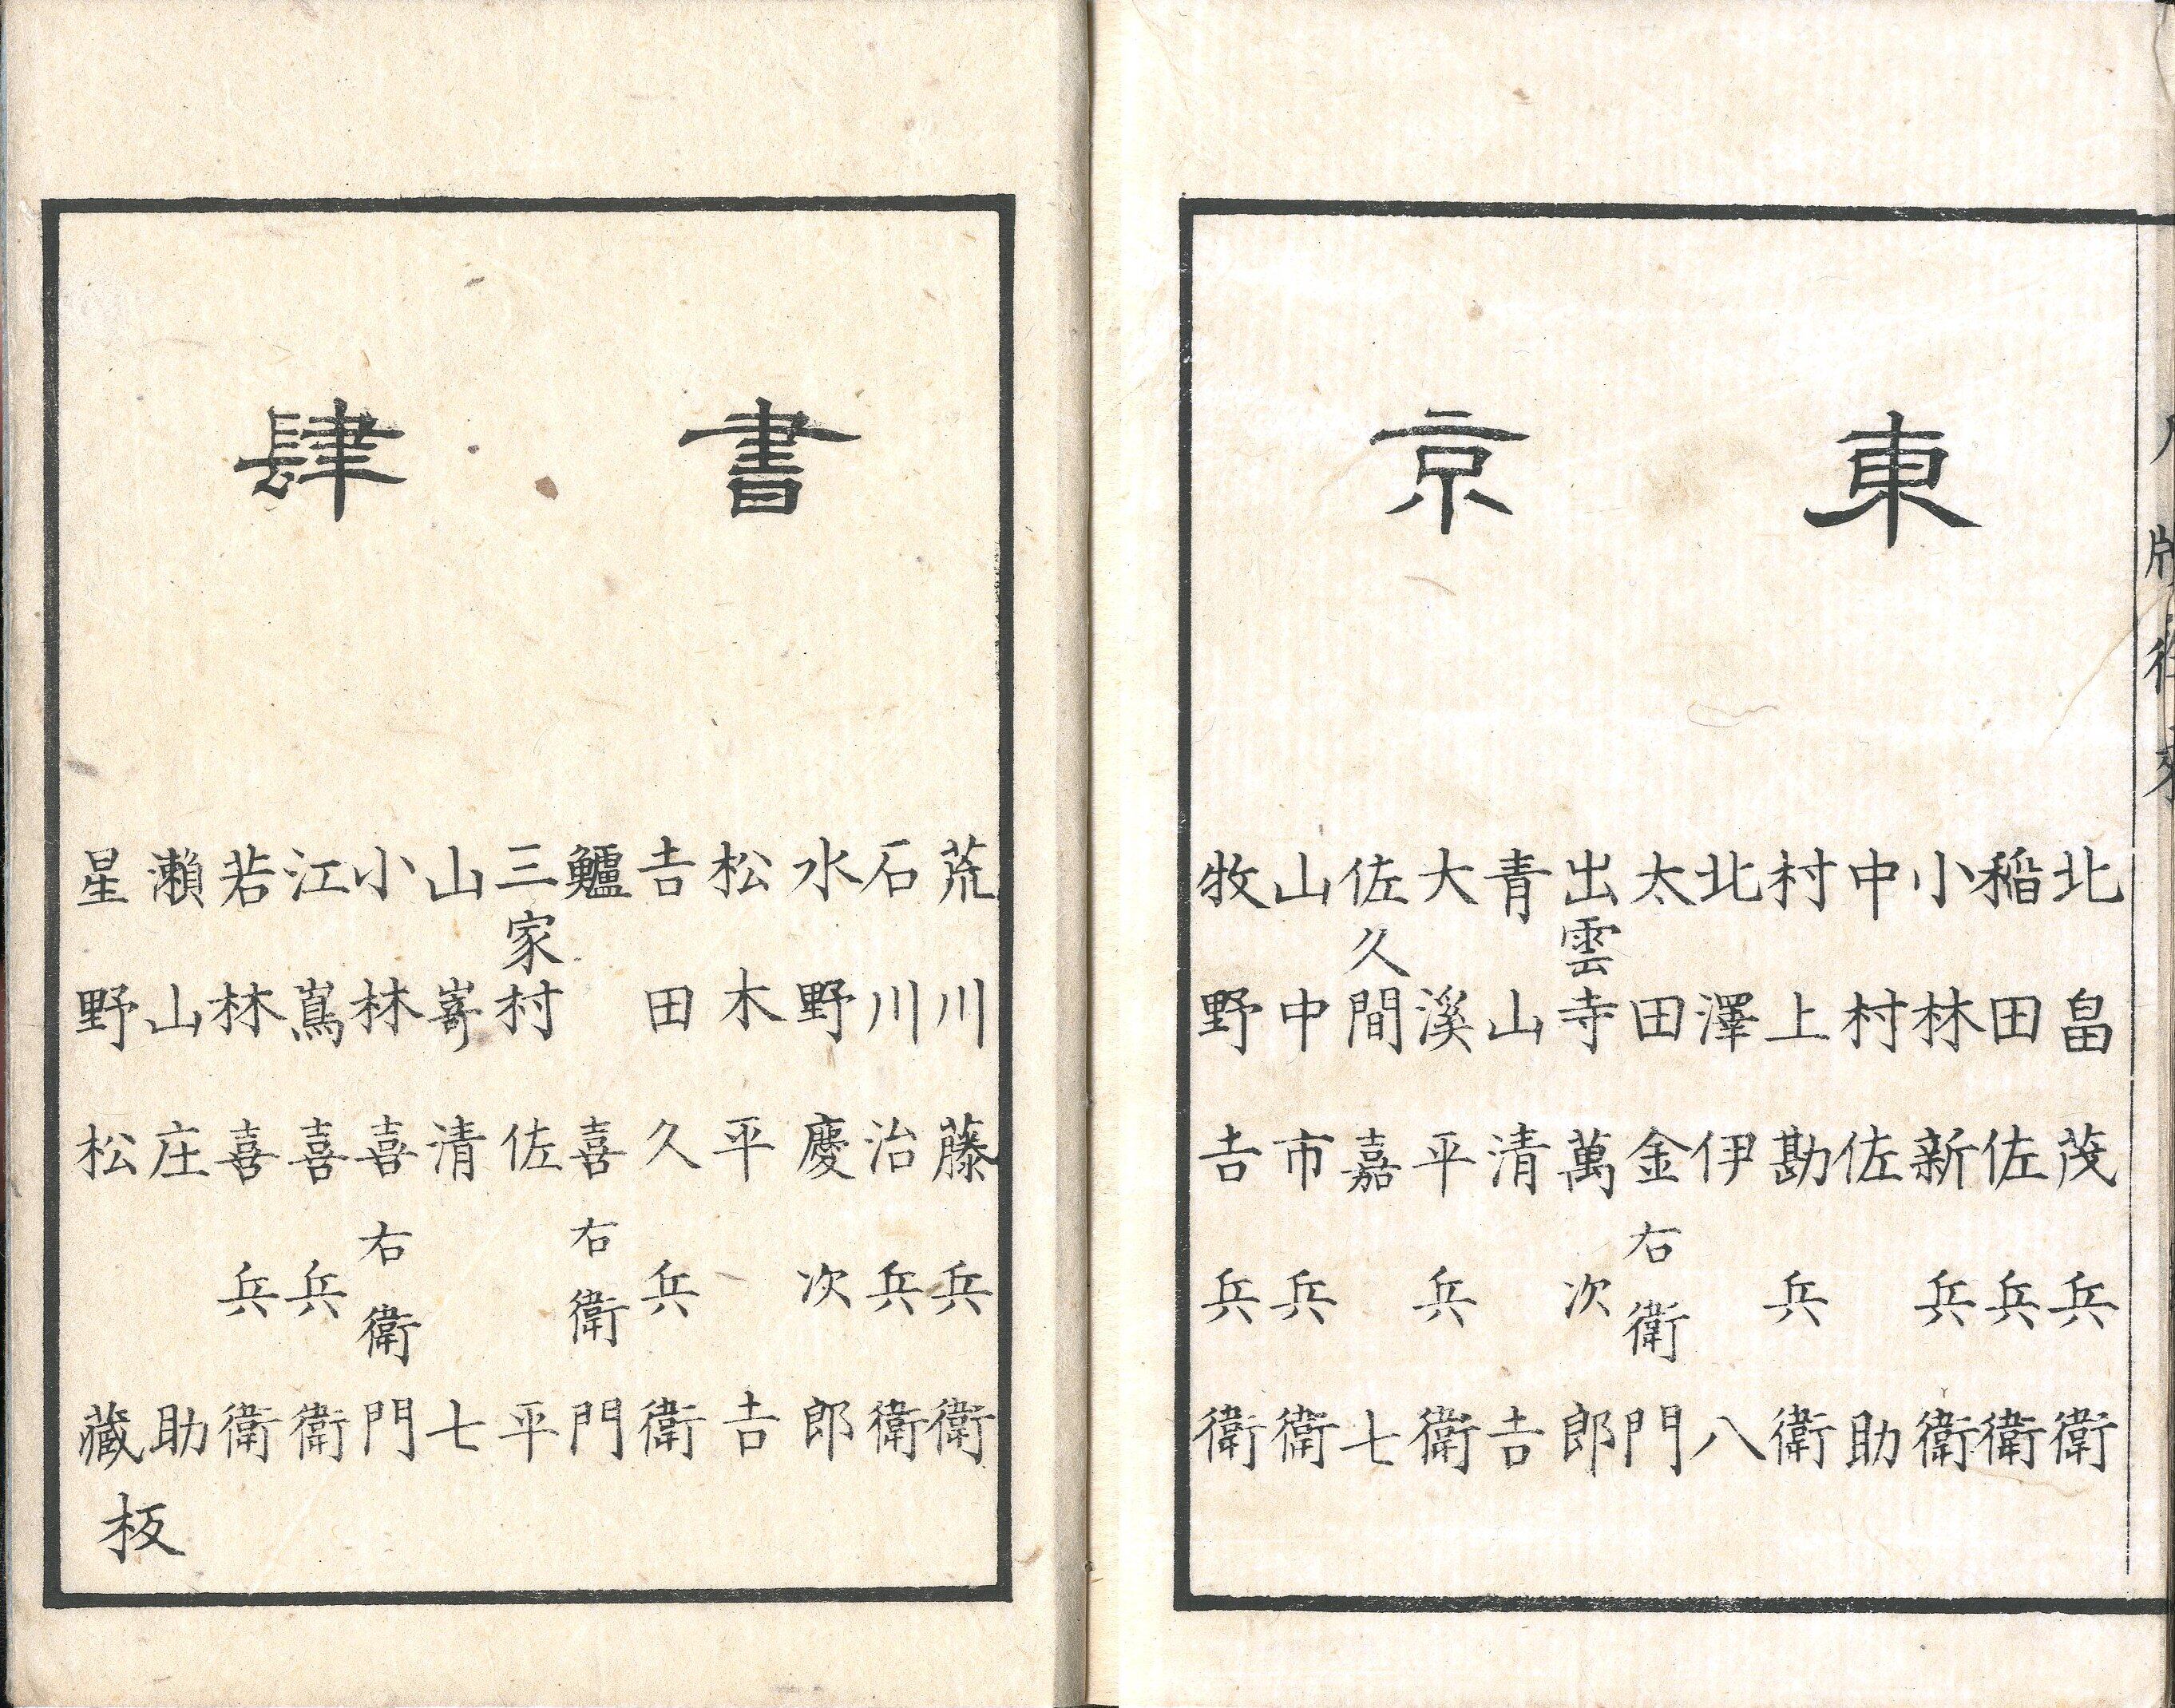 東京
北畠茂兵衛
稲田佐兵衛
小林新兵衛
中村佐助
村上勘兵衛
北澤伊八
太田金右衛門
出雲寺萬次郎
青山清吉
大溪平兵衛
佐久間嘉七
山中市兵衛
牧野吉兵衛
書肆
荒川藤兵衛
石川治兵衛
水野慶次郎
松木平吉
吉田久兵衛
鱸喜右衛門
三家村佐平
山嵜清七
小林喜右衛門
江嶌喜兵衛
若林喜兵衛
瀬山庄助
星野松藏
板